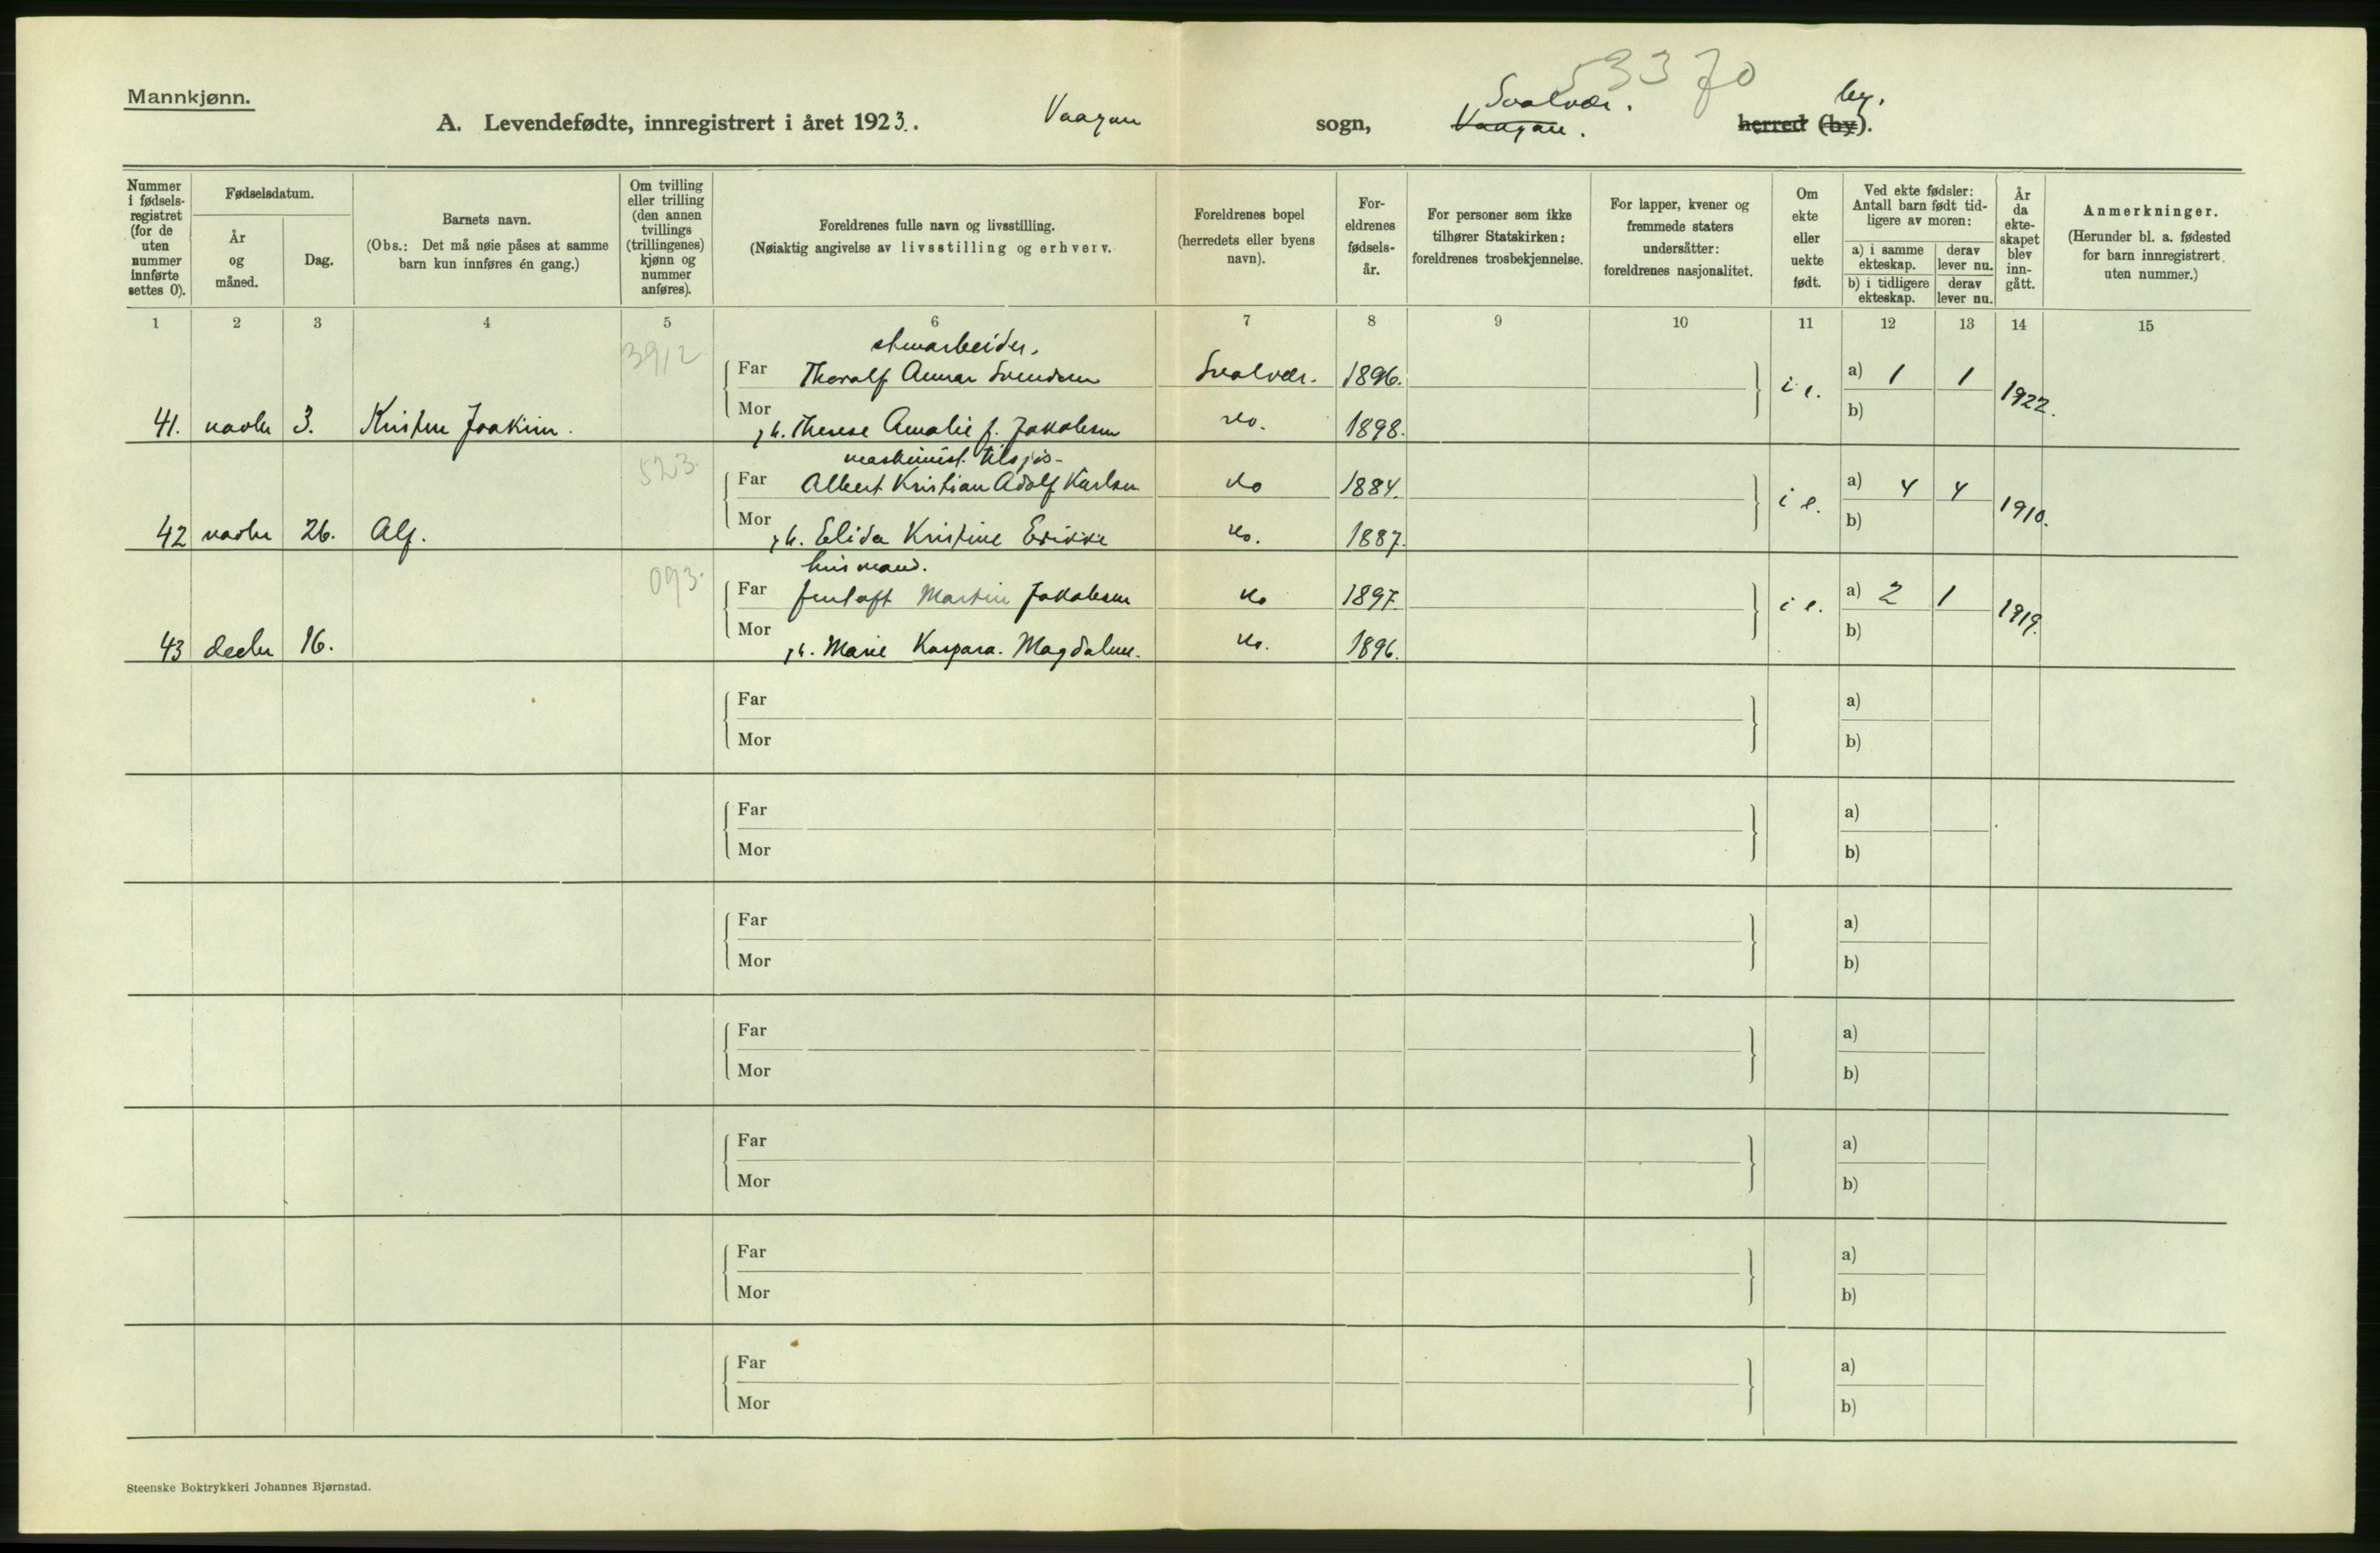 Mannkjønn.
53370
A. Levendefødte, innregistrert i året 1923. Vaagan sogn, Vaagan. Svolvær. herred (by). by.
Nummer i fødselsregistret (for de uten nummer innførte settes 0).
Fødselsdatum.
År og måned.
Dag.
Barnets navn.
(Obs.: Det må nøie påses at samme barn kun innføres én gang.)
Om tvilling eller trilling (den annen tvillings (trillingenes) kjønn og nummer anføres).
Foreldrenes fulle navn og livsstilling.
(Nøiaktig angivelse av livsstilling og erhverv.
Foreldrenes bopel (herredets eller byens navn).
Foreldrenes fødselsår.
For personer som ikke tilhører Statskirken: foreldrenes trosbekjennelse.
For lapper, kvener og fremmede staters undersåtter: foreldrenes nasjonalitet.
Om ekte eller uekte født.
Ved ekte fødsler: Antall barn født tidligere av moren:
a) i samme ekteskap.
derav lever nu.
b) i tidligere ekteskap.
derav lever nu.
År da ekteskapet blev inngått.
Anmerkninger.
(Herunder bl. a. fødested for barn innregistrert uten nummer.)
1 2 3 4 5 6 7 8 9 10 11 12 13 14 15
3912
stenarbeider.
Far Thoralf Annar Svendsen Svolvær. 1896. i e. a) 1 1 1922.
41. novbr 3. Kristen Joakim. Mor Therese Amalie f. Jakobsen do. 1898. b)
523.
maskinist tilsjøs
Far Albert Kristian Adolf Karlsen do 1884. i e. a) 4 4 1910.
42 novbr 26. Alf. Mor Elida Kristine Erikke do. 1887. b)
093.
husmand.
Far Jentoft Martin Jakobsen do 1897. i e. a) 2 1 1919.
43 decbr 16. Mor Marie Kaspara Magdalene. do. 1896. b)
Far a)
Mor b)
Far a)
Mor b)
Far a)
Mor b)
Far a)
Mor b)
Far a)
Mor b)
Far a)
Mor b)
Far a)
Mor b)
Steenske Boktrykkeri Johannes Bjørnstad.